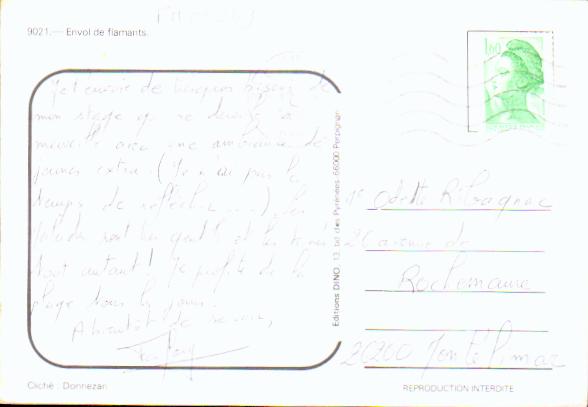 9021. — Envol de flamants.
1,60
Je t'envoie de
mon stage qui se déroule à
merveille avec une ambiance de
jeunes extra. (Je n'ai pas le
temps de réfléchir ...) les
sont très gentils et les
tout autant ! Je profite de la
plage tous les jours.
A bientôt de se voir,
Editions DINO, 13, bd des Pyrénées, 66000 Perpignan
Odette Ribagnac
26 avenue de
Rochemaure
26200 Montélimar
Cliché : Donnezan
REPRODUCTION INTERDITE